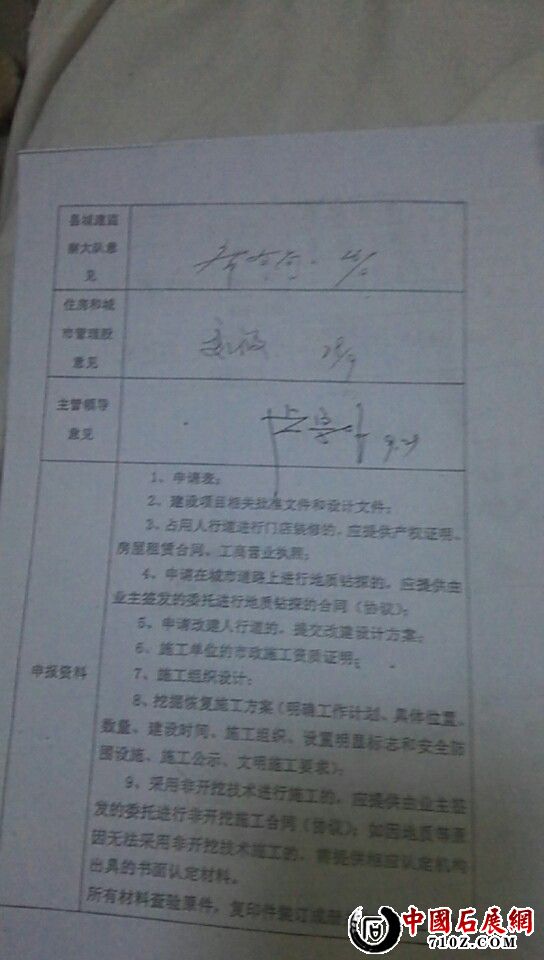 县城建监
察大队意
见
住房和城
市管理股
意见
主管领导
意见
9.29
申报资料
1、申请表；
2、建设项目相关批准文件和设计文件；
3、占用人行道进行门店装修的，应提供产权证明、
房屋租赁合同、工商营业执照；
4、申请在城市道路上进行地质钻探的，应提供由
业主签发的委托进行地质钻探的合同（协议）；
5、申请改建人行道的，提交改建设计方案；
6、施工单位的市政施工资质证明；
7、施工组织设计；
8、挖掘恢复施工方案（明确工作计划、具体位置、
数量、建设时间、施工组织、设置明显标志和安全防
围设施、施工公示、文明施工要求）；
9、采用非开挖技术进行施工的，应提供由业主签
发的委托进行非开挖施工合同（协议）；如因地质等原
因无法采用非开挖技术施工的，需提供相应认定机构
出具的书面认定材料。
所有材料查验原件，复印件装订成册
中國石展網
710Z.COM